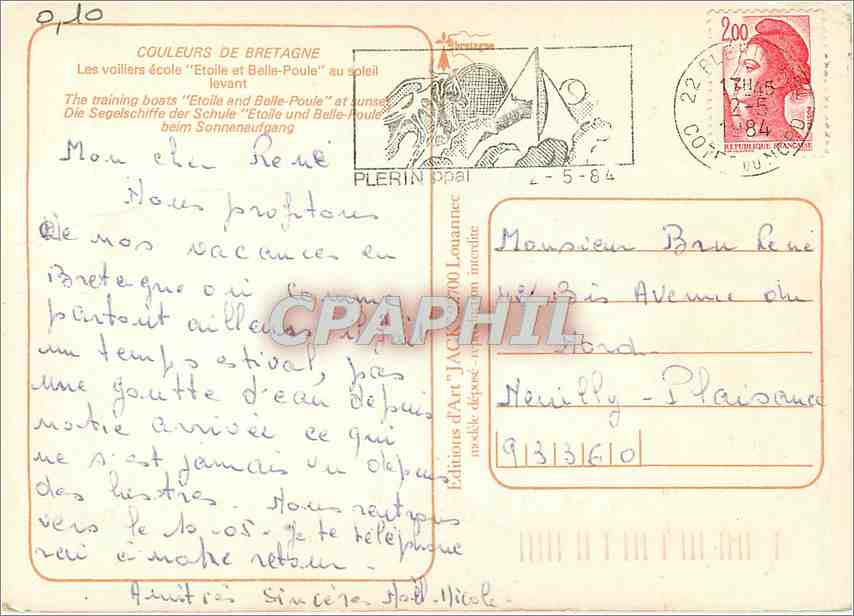 0,10
COULEURS DE BRETAGNE
Les voiliers école "Etoile et Belle-Poule" au soleil
levant
The training boats "Etoile and Belle-Poule" at sunset
Die Segelschiffe der Schule "Etoile und Belle-Poule"
beim Sonnenaufgang
bretagne
PLERIN ppal 2-5-84
2,00
REPUBLIQUE FRANÇAISE
22 PLER
17H45
2-5
1984
COTES DU NORD
Mon cher René
Nous profitons
de nos vacances en
Bretagne où comme
partout ailleurs il fait
un temps estival, pas
une goutte d'eau depuis
notre arrivée ce qui
ne s'est jamais vu depuis
des lustres. Nous rentrons
vers le 10-05- Je te téléphone
rai à notre retour.
Amitiés Sincères Noël-Nicole-
Editions d'Art "JACK" 22700 Louannec
modèle déposé - interdite
CPAPHIL
Monsieur Bru René
Bis Avenue du
Nord
Neuilly-Plaisance
93360